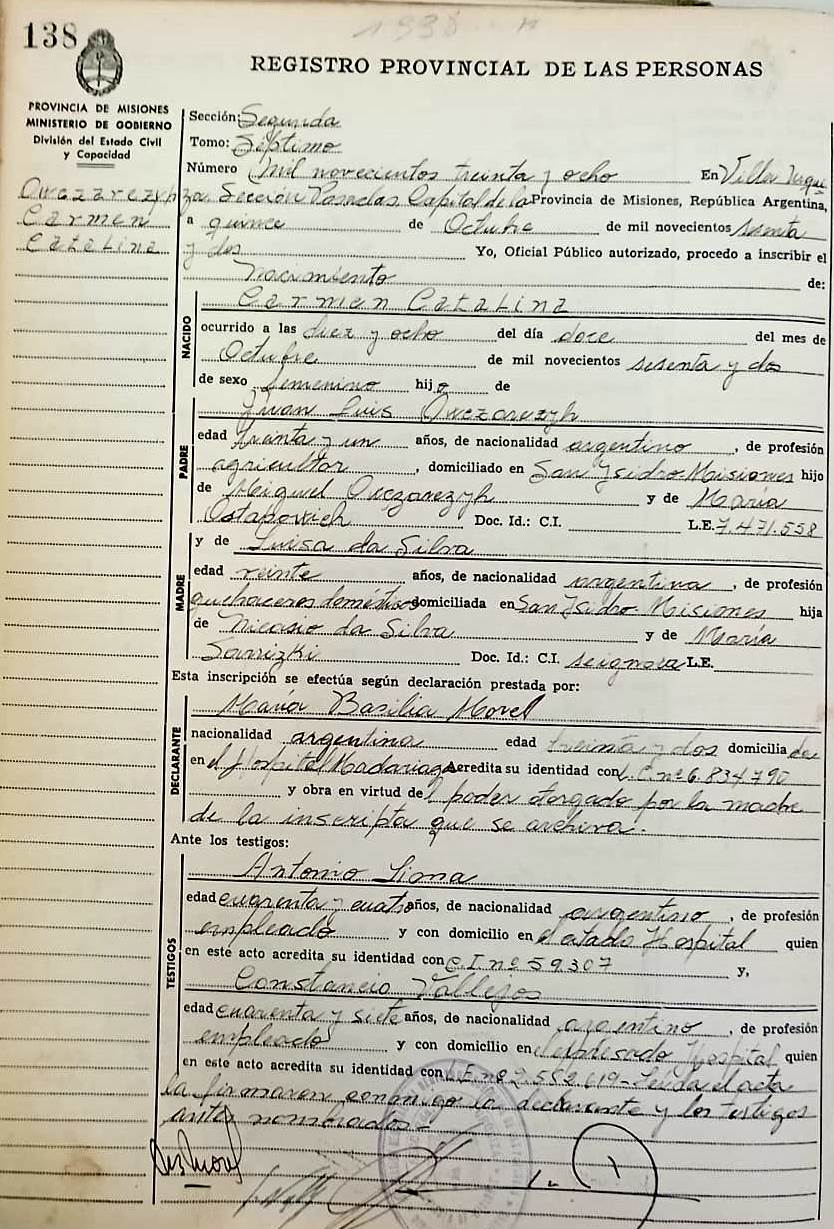 138
1938
REGISTRO PROVINCIAL DE LAS PERSONAS
PROVINCIA DE MISIONES
MINISTERIO DE GOBIERNO
División del Estado Civil
y Capacidad
Owczarezyh
Carmen
Catalina
Sección: Segunda
Tomo: Séptimo
Número Mil novecientos treinta y ocho En Villa Urqui
za Sección Posadas Capital de la Provincia de Misiones, República Argentina,
a quince de Octubre de mil novecientos sesenta
y dos Yo, Oficial Público autorizado, procedo a inscribir el
Nacimiento de:
NACIDO
Carmen Catalina
ocurrido a las diez y ocho del día doce del mes de
Octubre de mil novecientos sesenta y dos
de sexo femenino hija de
PADRE
Juan Luis Owczarezyh
edad treinta y un años, de nacionalidad argentino, de profesión
agricultor, domiciliado en San Ysidro-Misiones hijo
de Miguel Owczarezyh y de María
Ostapovich Doc. Id.: C.I. L.E. 7.471.558
MADRE
y de Luisa da Silva
edad veinte años, de nacionalidad argentina, de profesión
quehaceres domésticos domiciliada en San Isidro Misiones hija
de Nicasio da Silva y de María
Sawizki Doc. Id.: C.I. se ignora L.E.
Esta inscripción se efectúa según declaración prestada por:
DECLARANTE
María Basilia Morel
nacionalidad argentina edad treinta y dos domicilia da
en el Hospital Madariaga acredita su identidad con L.C. nº 6.834.790
y obra en virtud del poder otorgado por la madre
de la inscripta que se archiva.
Ante los testigos:
TESTIGOS
Antonio Lima
edad cuarenta y cuatro años, de nacionalidad argentino, de profesión
empleado y con domicilio en el citado Hospital quien
en este acto acredita su identidad con C.I. nº 59.307 y,
Constancio Vallejos
edad cuarenta y siete años, de nacionalidad argentino, de profesión
empleado y con domicilio en el Hospital quien
en este acto acredita su identidad con L.E. nº 2.552.619- Leida el acta
la firmaron conmigo la declarante y los testigos
antes nombrados-